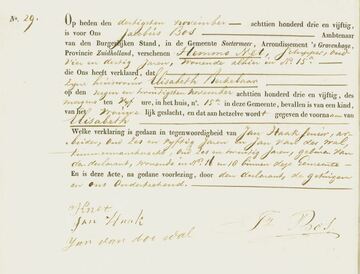 No. 29.
Op heden den dertigsten November achttien honderd drie en vijftig,
is voor Ons Jacobus Bos Ambtenaar
van den Burgerlijken Stand, in de Gemeente Soetermeer, Arrondissement 's Gravenhage,
Provincie Zuidholland, verschenen Hermanus Net, Schipper, oud
vier en dertig Jaren, wonende alhier in No. 15a
die Ons heeft verklaard, dat
zijne huisvrouw Elisabeth
op den negen en twintigsten November achttien honderd drie en vijftig, des
morgens ten vijf ure, in het huis, no. 15a in deze Gemeente, bevallen is van een kind,
van het Vrouwelijk geslacht, en dat hetzelve wordt gegeven de voornaam van
Elisabeth
Welke verklaring is gedaan in tegenwoordigheid van Jan Haak Junior, ar-
beider, oud zes en vijftig Jaren en Jan van der Wal,
timmermansknecht, oud zes en twintig Jaren, geburen van
den declarant, wonende in No. 11 en 10 binnen deze Gemeente
En is deze Acte, na gedane voorlezing, door den declarant, de getuigen
en ons Onderteekend.
H Net
Jan Haak
Jan van der Wal
Js. Bos